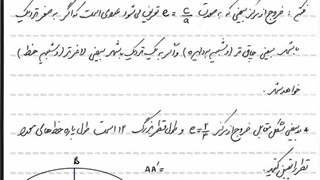 نکته : خروج از مرکز بیضی که به صورت e = c/a تعریف می شود عددی است که اگر به صفر نزدیک
باشد بیضی چاق تر (و شبیه به دایره) و اگر به یک نزدیک باشد بیضی لاغر تر (و شبیه خط)
خواهد شد.
* در بیضی شکل مقابل خروج از مرکز e = و طول قطر بزرگ ۱۲ است طول پاره خط های
قطر را تعیین کنید.
B
AA' =